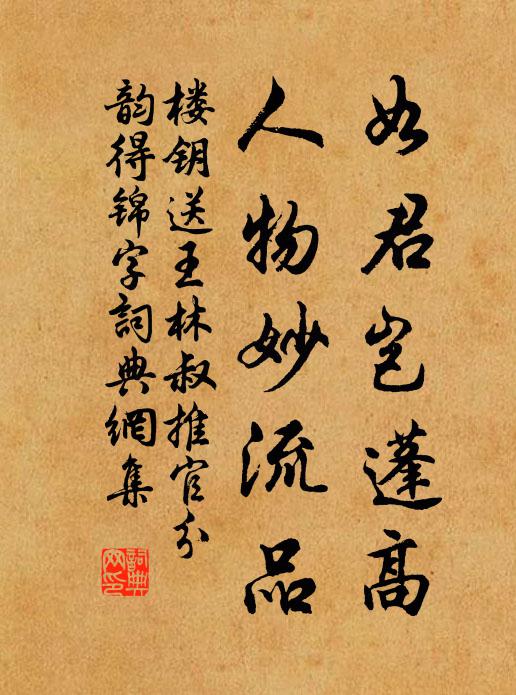 如君岂蓬高
人物妙流品
楼钥送王林叔推官分
韵得锦字詞典網集
詞典
网印